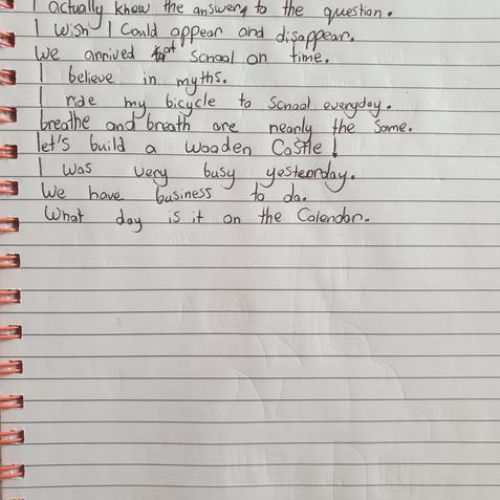 I actually knew the answer to the question.
I wish I Could appear and disappear.
We arrived at School on time.
I believe in myths.
I ride my bicycle to School everyday.
breathe and breath are nearly the same.
let's build a wooden Castle!
I was very busy yesterday.
We have business to do.
What day is it on the Calendar.